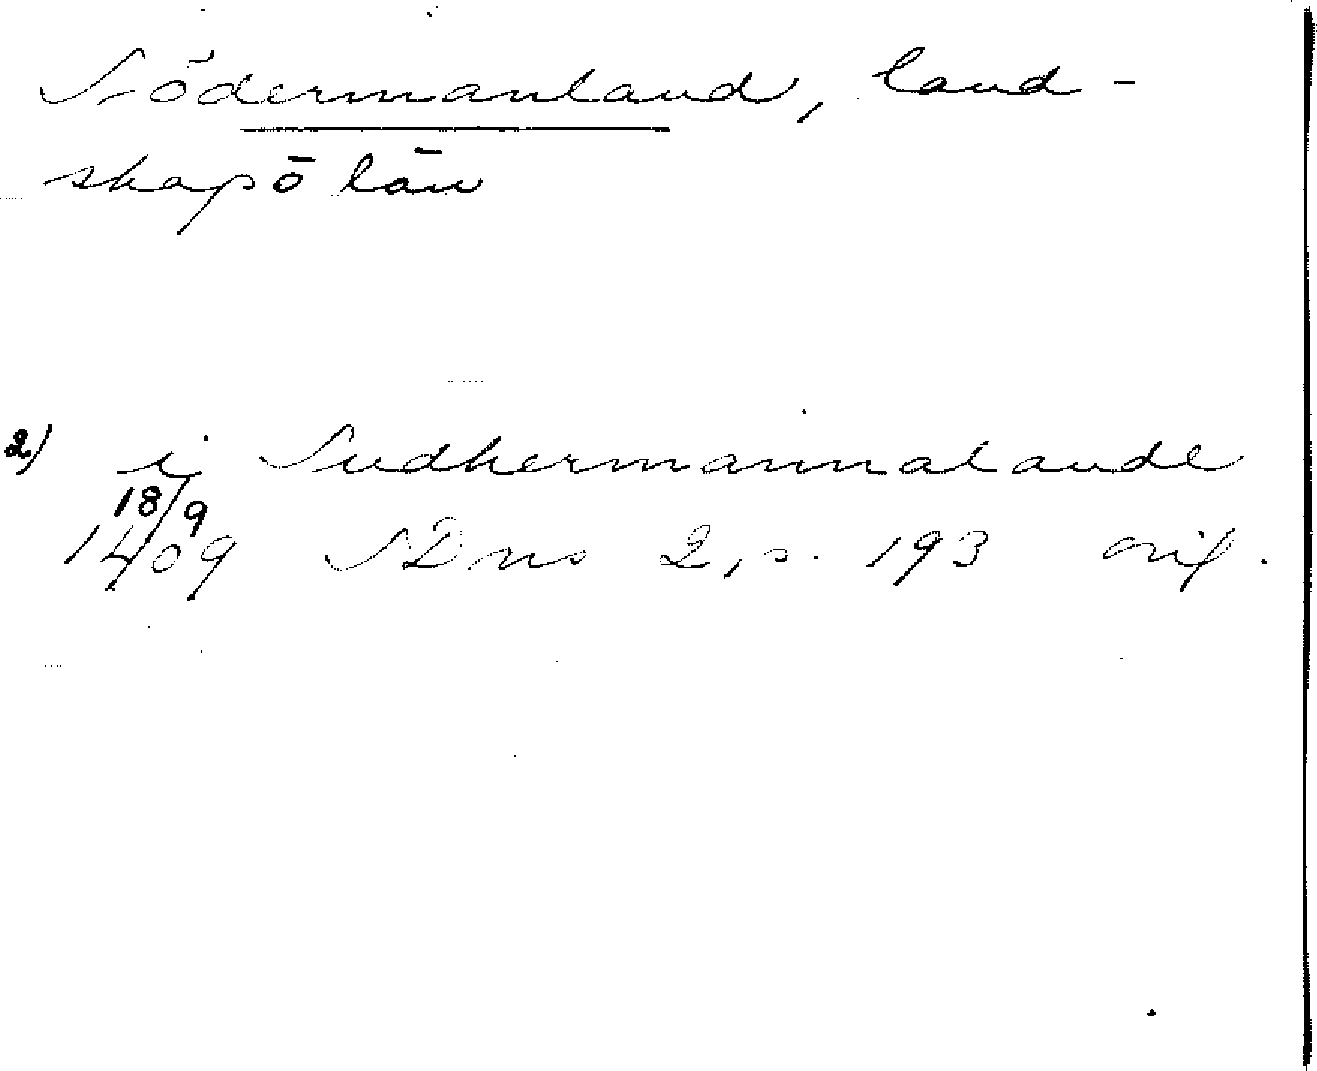 Södermanland, land-
skap ō län
2) i Sudhermannalande
18/9
1409 SDns 2, s. 193 orig.